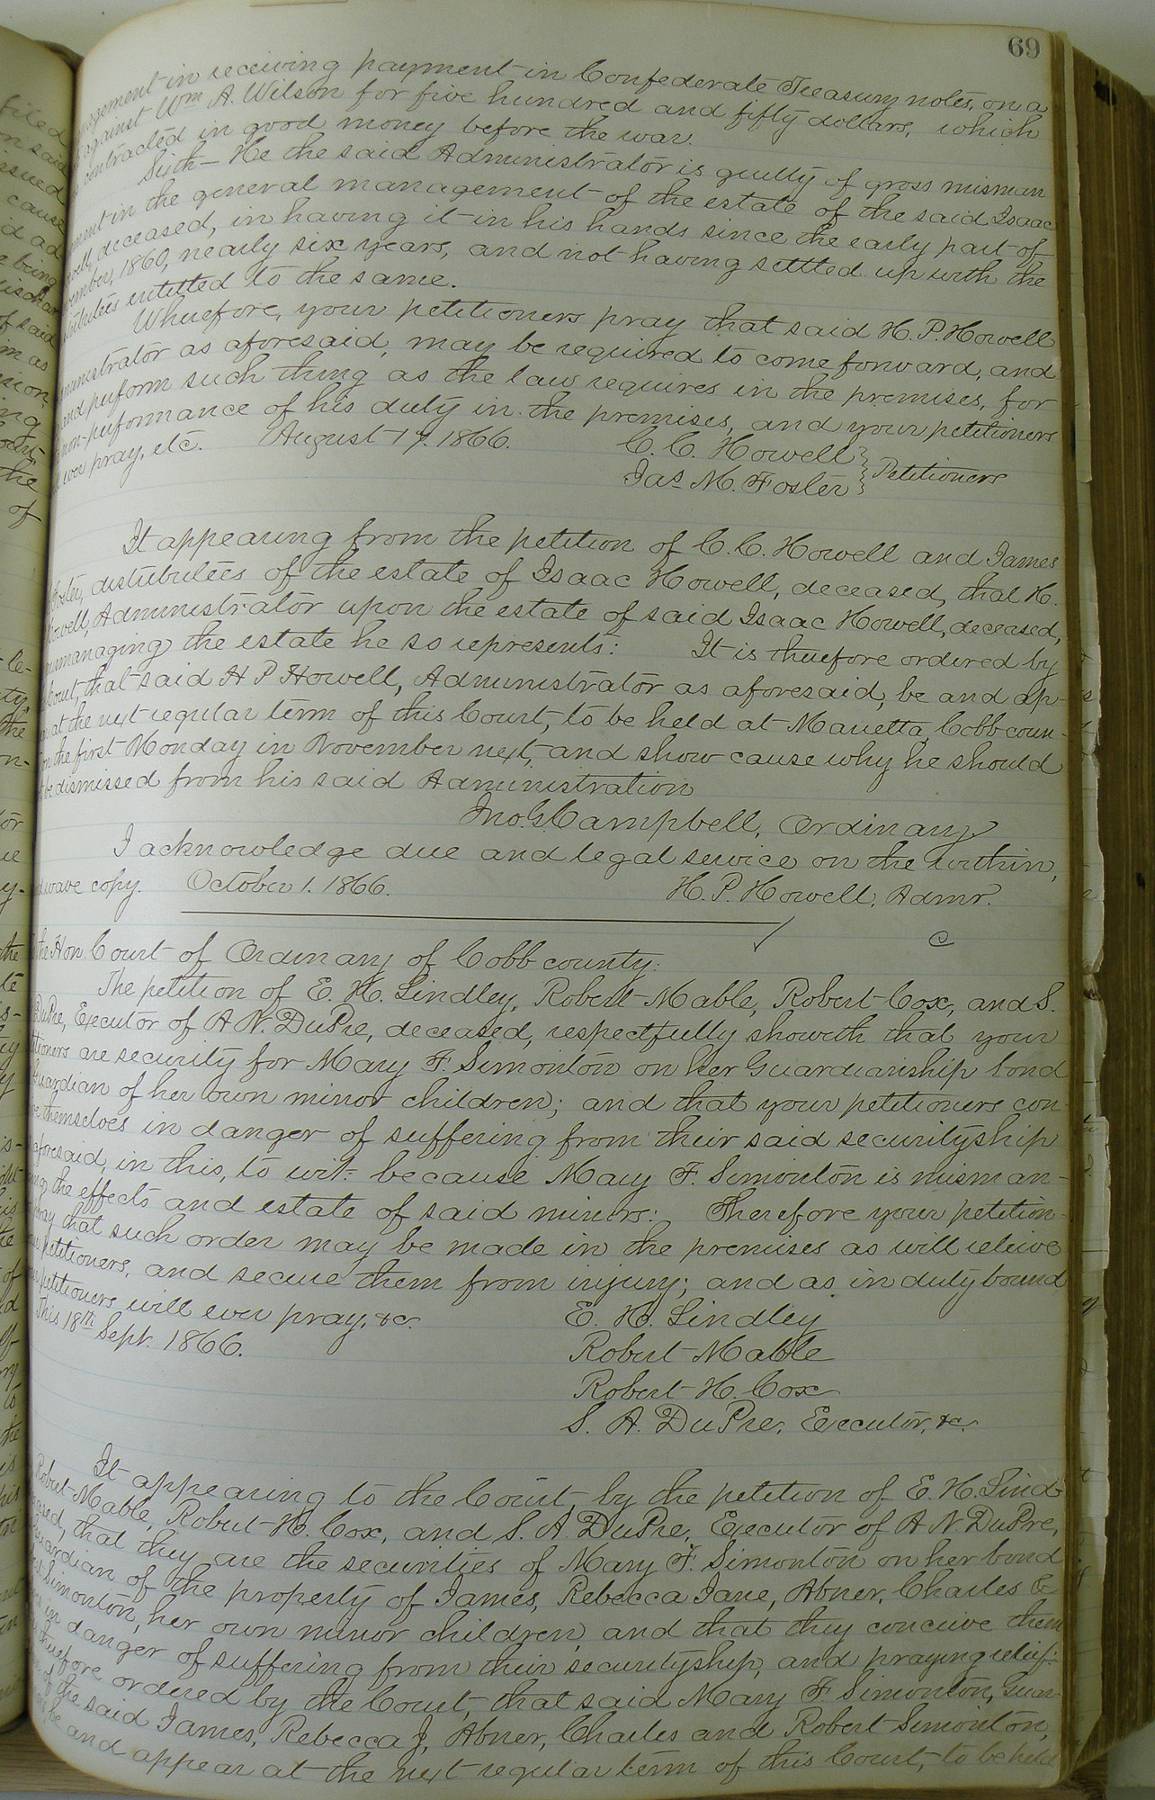 69
agement in receiving payment in Confederate Treasury notes, on a
against Wm A. Wilson for five hundred and fifty dollars, which
contracted in good money before the war.
Sixth— He the said Administrator is guilty of gross misman
ment in the general management of the estate of the said Isaac
well, deceased, in having it in his hands since the early part of
ember, 1860, nearly six years, and not having settled up with the
tributees entitled to the same.
Wherefore, your petitioners pray that said H. P. Howell
ministrator as aforesaid, may be required to come forward, and
and perform such thing as the law requires in the premises, for
non-performance of his duty in the premises, and your petitioners
ever pray, etc. August 17. 1866. C. C. Howell
Jas. M. Foster } Petitioners
It appearing from the petition of C. C. Howell and James
Foster, distributees of the estate of Isaac Howell, deceased, that H.
Howell, Administrator upon the estate of said Isaac Howell, deceased,
mismanaging the estate he so represents: It is therefore ordered by
Court, that said H P Howell, Administrator as aforesaid, be and ap-
at the next regular term of this Court, to be held at Marietta, Cobb coun-
on the first Monday in November next, and show cause why he should
be dismissed from his said Administration
Jno. G. Campbell, Ordinary
I acknowledge due and legal service on the within,
wave copy. October 1. 1866. H. P. Howell, Admr.
the Hon. Court of Ordinary of Cobb county:
The petition of E. H. Lindley, Robert Mable, Robert Cox, and S.
DuPre, Executor of A N. DuPre, deceased, respectfully showeth that your
titioners are security for Mary F. Simonton on her Guardianship bond
Guardian of her own minor children; and that your petitioners con-
themselves in danger of suffering from their said securityship
aforesaid, in this, to wit: because Mary F. Simonton is misman-
ing the effects and estate of said minors: Therefore your petition-
pray that such order may be made in the premises as will relieve
petitioners, and secure them from injury; and as in duty bound
petitioners will ever pray, &c. E. H. Lindley
This 18th Sept. 1866. Robert Mable
Robert H. Cox
S. A. DuPre, Executor, &c.
It appearing to the Court by the petition of E. H. Lind-
Robert Mable, Robert H. Cox, and S. A. DuPre, Executor of A N. DuPre,
that they are the securities of Mary F. Simonton on her bond
Guardian of the property of James, Rebecca Jane, Abner, Charles &
Simonton, her own minor children, and that they conceive them
in danger of suffering from their securityship, and praying relief:
therefore ordered by the Court, that said Mary F Simonton, Guar-
the said James, Rebecca J, Abner, Charles and Robert Simonton,
be and appear at the next regular term of this Court, to be held